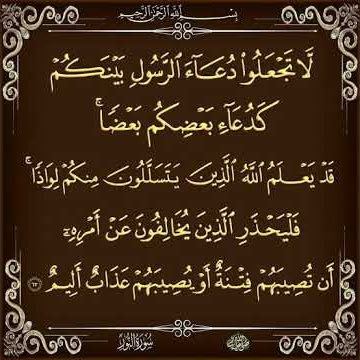 بِسْمِ ٱللَّهِ ٱلرَّحْمَٰنِ ٱلرَّحِيمِ
لَّا تَجْعَلُوا۟ دُعَآءَ ٱلرَّسُولِ بَيْنَكُمْ
كَدُعَآءِ بَعْضِكُم بَعْضًا ۚ
قَدْ يَعْلَمُ ٱللَّهُ ٱلَّذِينَ يَتَسَلَّلُونَ مِنكُمْ لِوَاذًا ۚ
فَلْيَحْذَرِ ٱلَّذِينَ يُخَالِفُونَ عَنْ أَمْرِهِۦٓ
أَن تُصِيبَهُمْ فِتْنَةٌ أَوْ يُصِيبَهُمْ عَذَابٌ أَلِيمٌ ٦٣
سُورَةُ النُّورِ